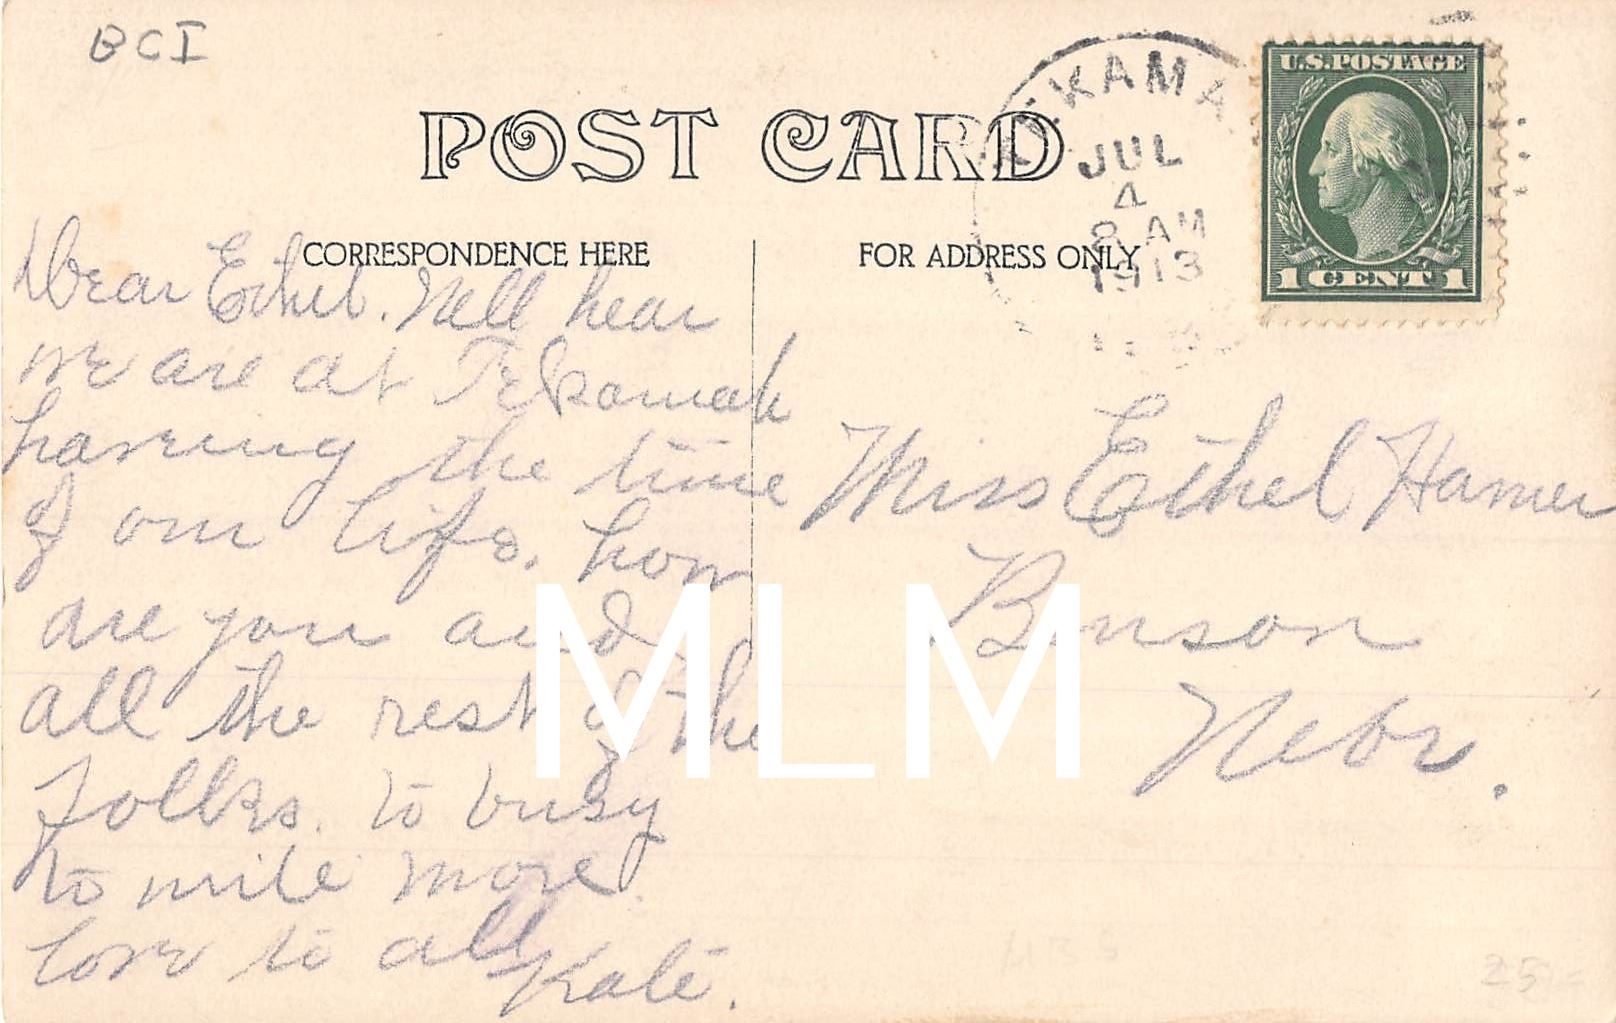 BCI
POST CARD
TEKAMA
JUL
4
8 AM
1913
U.S. POSTAGE
1 CENT 1
CORRESPONDENCE HERE
FOR ADDRESS ONLY
Dear Ethel. Well hear
we are at Tekamah
having the time
of our life. how
are you and
all the rest of the
folks. to busy
to write more.
love to all
Kate.
Miss Ethel Hamer
Benson
Nebr.
MLM
25